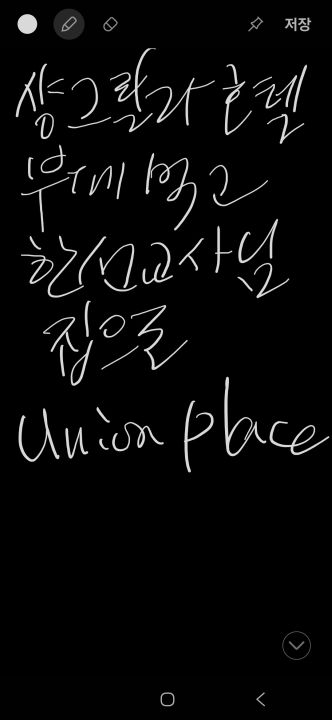 저장
샹그릴라 호텔
부페 먹고
한선교사님
집으로
Union place